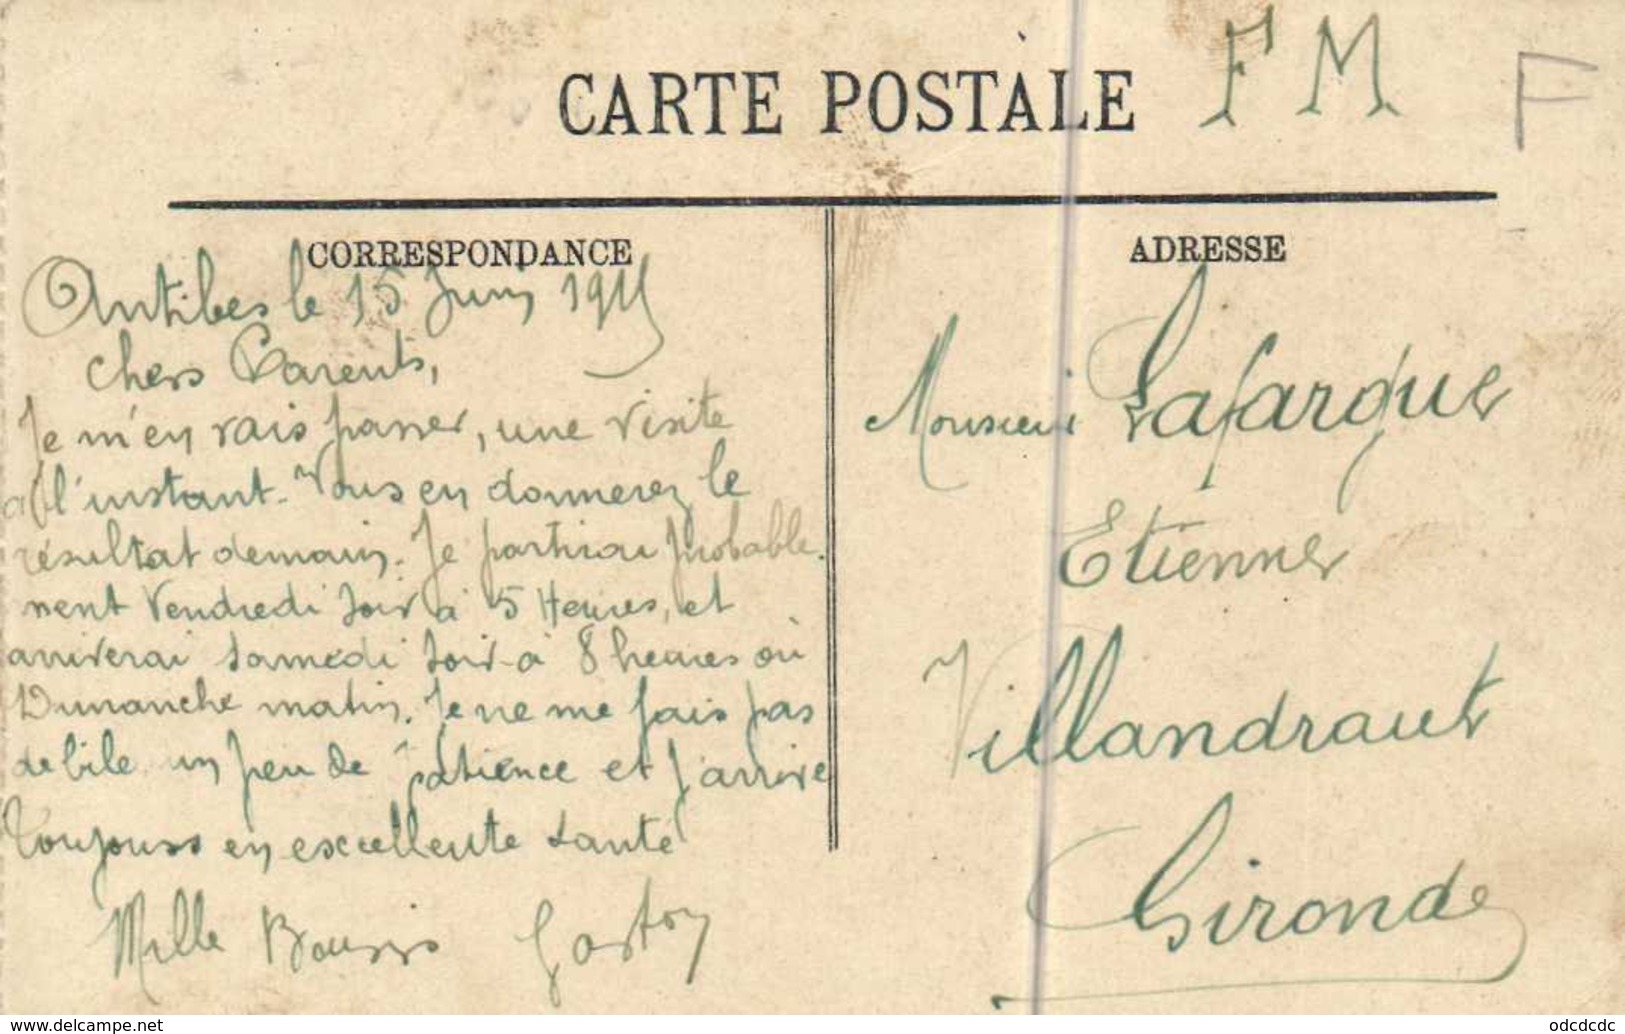 CARTE POSTALE
F M
F
CORRESPONDANCE
Antibes le 15 Juin 1915
chers Parents,
Je m'en vais passer, une visite
à l'instant. Vous en donnerez le
résultat demain. Je partirai probable.
ment Vendredi soir à 5 Heures, et
arriverai samedi soir à 8 heures ou
Dimanche matin. Je ne me fais pas
de bile un peu de patience et j'arrive
Toujours en excellente santé
Mille Baisers Gaston
ADRESSE
Monsieur Lafargue
Etienne
Villandraut
Gironde
www.delcampe.net
odcdcdc